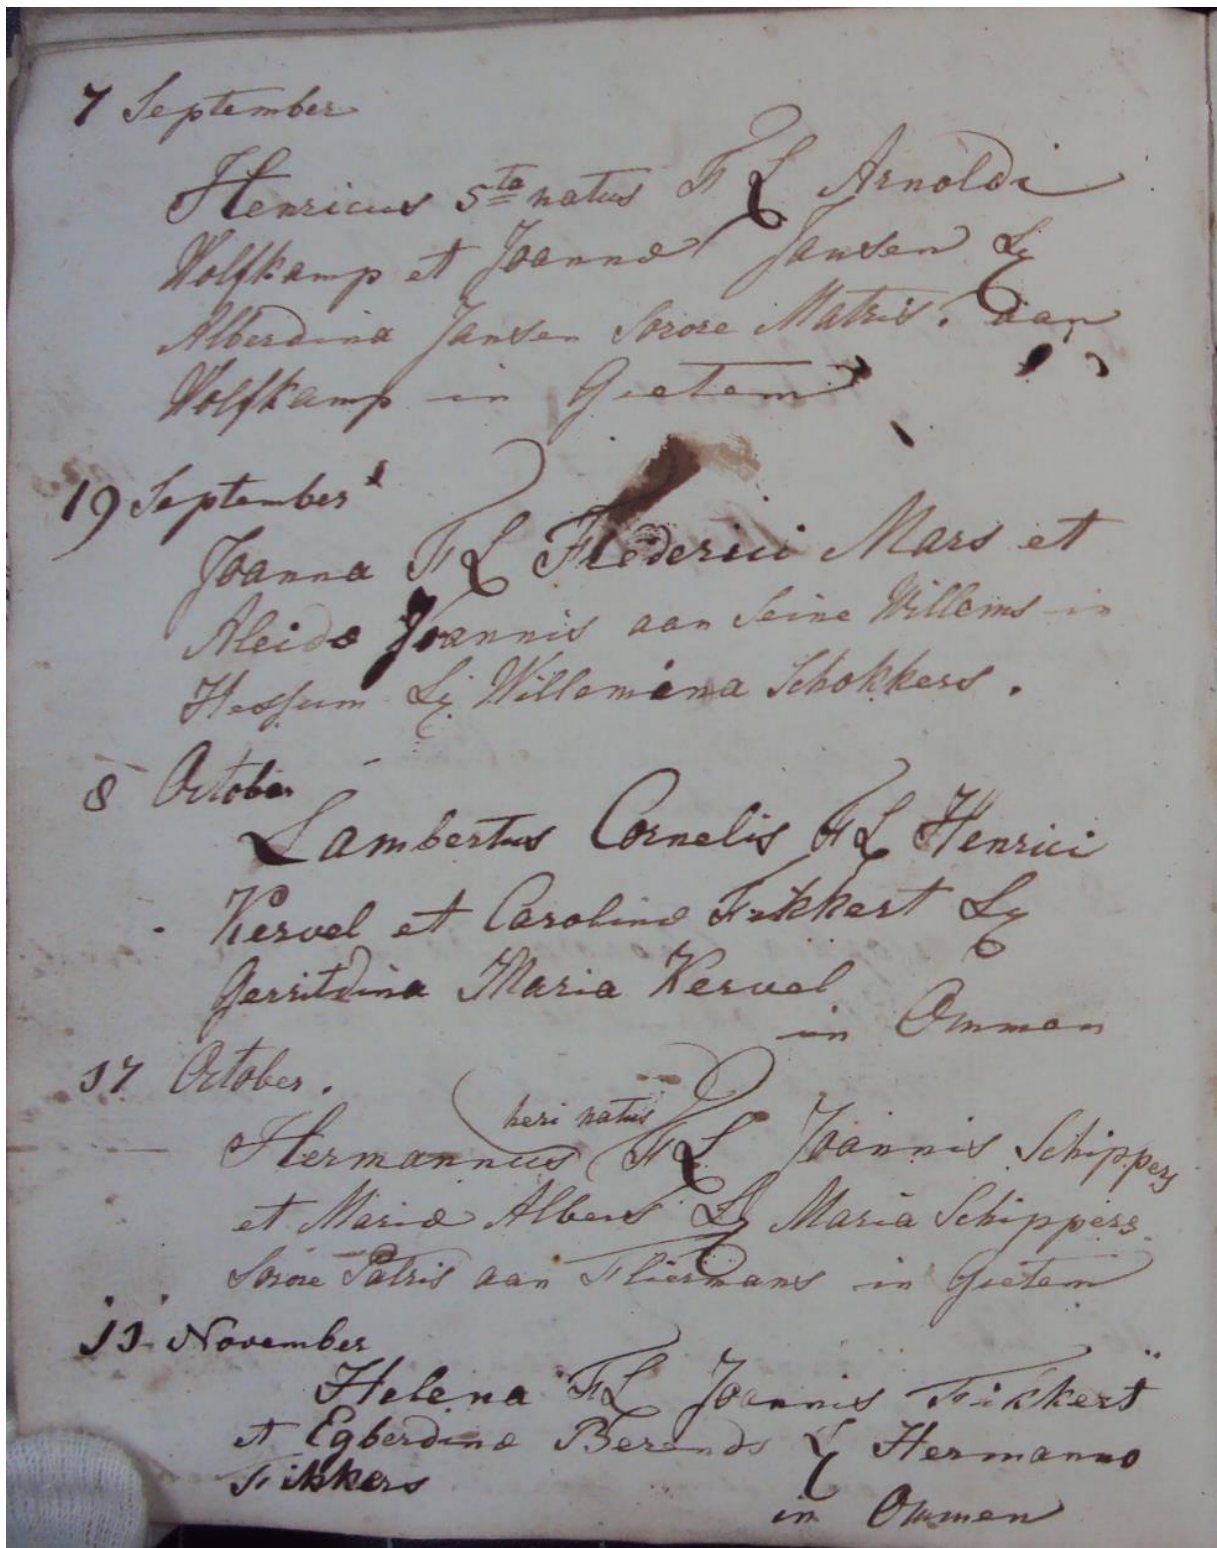 7 September
Henricus 5ta natus FL Arnoldi
Wolfkamp et Joannæ Jansen L
Alberdina Jansen Sorore Matris. aan
Wolfkamp in Gietem
19 September
Joanna FL Frederici Mars et
Aleidæ Joannis aan Seine Willems in
Hessum L Willemina Schokkers.
8 October
Lambertus Cornelis FL Henrici
Kervel et Carolinæ Fikkert L
Gerritdina Maria Kervel
in Ommen
17 October.
heri natus
Hermannus FL Joannis Schippers
et Mariæ Albers L Maria Schippers
Sorore Patris aan Fliermans in Gietem
11 November
Helena FL Joannis Fikkert
et Egberdinæ Berends L Hermanno
Fikkers
in Ommen